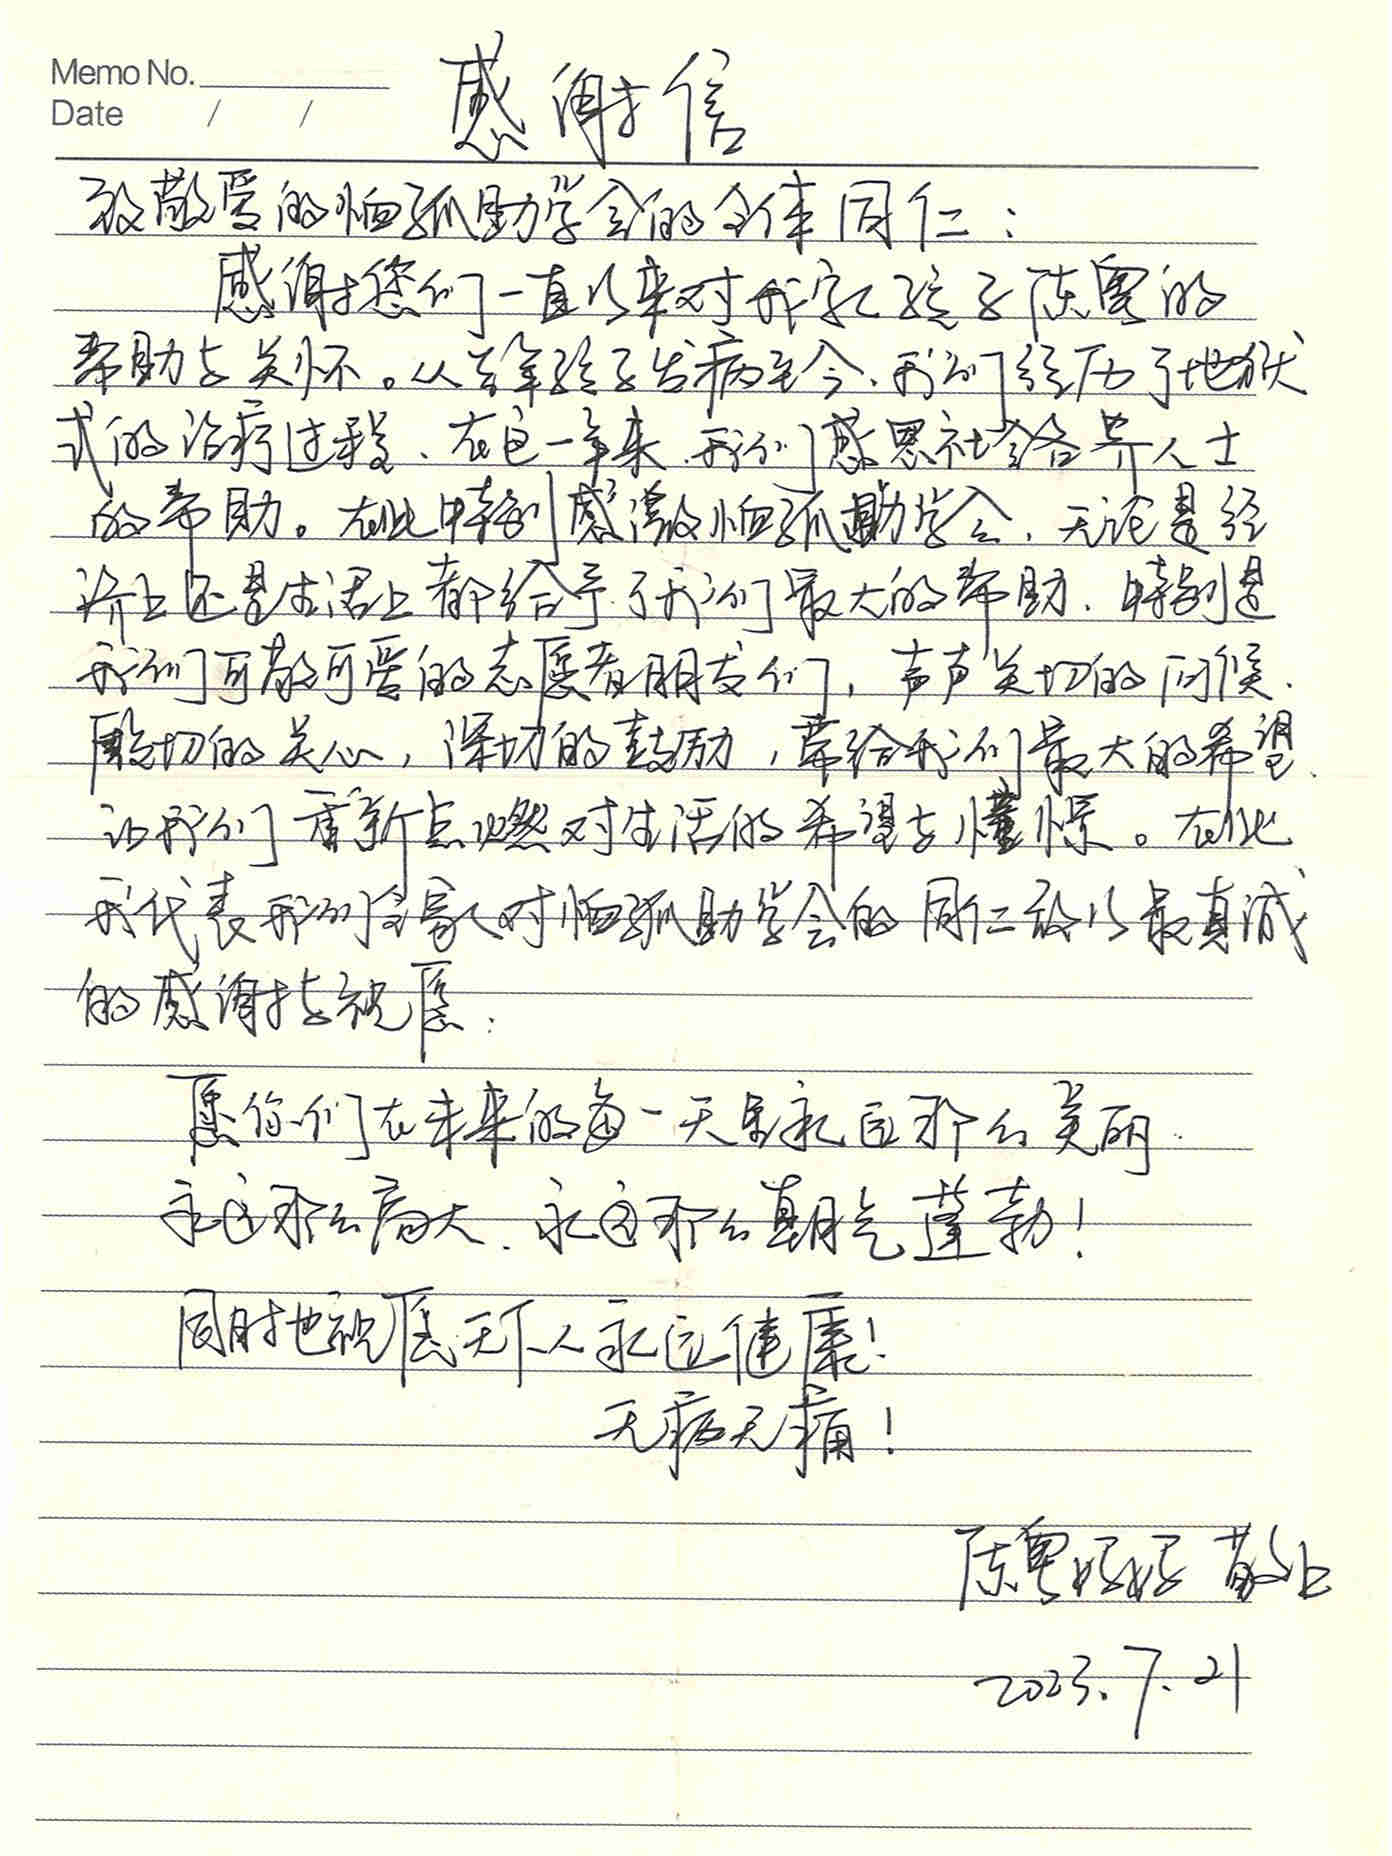 Memo No.
Date / /
感谢信
致敬爱的恤孤助学会的全体同仁：
感谢您们一直以来对我家孩子陈粤的
帮助与关怀。从去年孩子发病至今、我们经历了地狱
式的治疗过程、在这一年来、我们感恩社会各界人士
的帮助。在此中特别感激恤孤助学会，无论是经
济上还是生活上都给予了我们最大的帮助、特别是
我们可敬可爱的志愿者朋友们，声声关切的问候、
殷切的关心，深切的鼓励，带给我们最大的希望、
让我们重新点燃对生活的希望与憧憬。在此
我代表我们全家人对恤孤助学会的同仁致以最真诚
的感谢与祝愿：
愿你们在未来的每一天里永远那么美丽
永远那么高大、永远那么朝气蓬勃！
同时也祝愿天下人永远健康！
无病无痛！
陈粤妈妈 敬上
2023.7.21